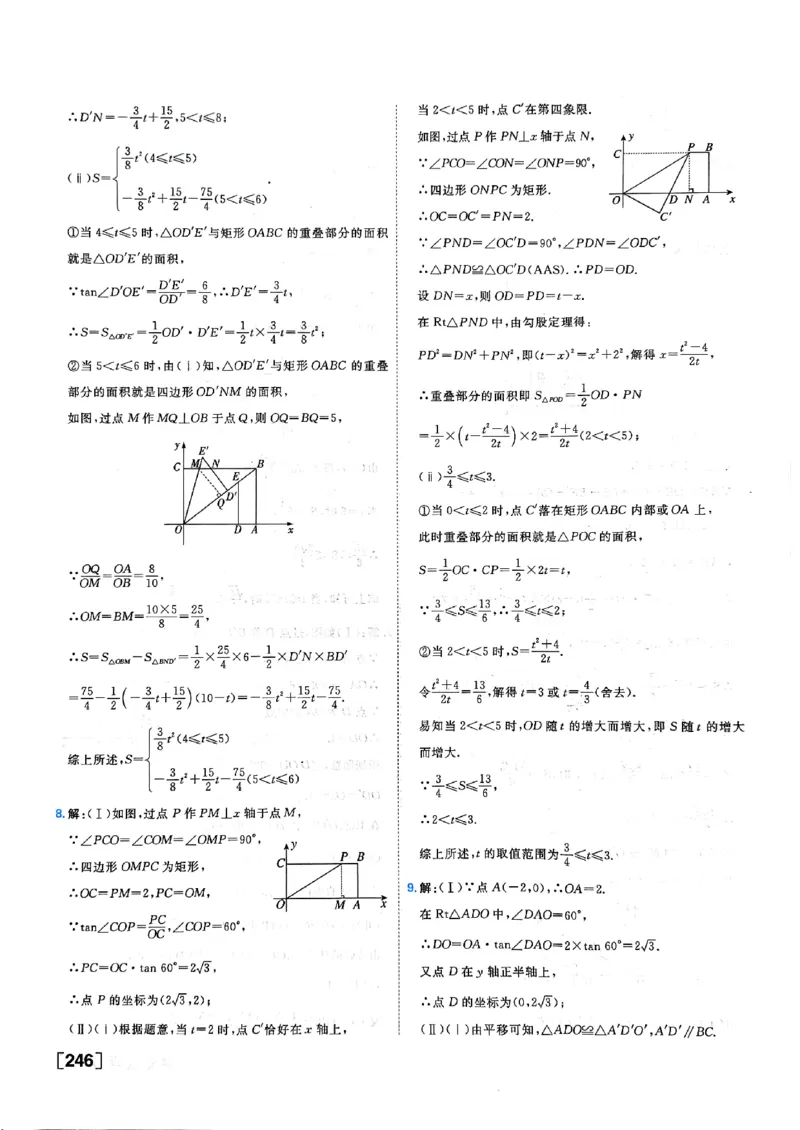 ∴D′N=-3/4t+15/2,5<t≤8;
(ⅱ)S={3/8t²(4≤t≤5)
-3/8t²+15/2t-75/4(5<t≤6).
①当4≤t≤5时,△OD′E′与矩形OABC的重叠部分的面积
就是△OD′E′的面积,
∵tan∠D′OE′=D′E′/OD′=6/8,∴D′E′=3/4t,
∴S=S△OD′E′=1/2OD′·D′E′=1/2t×3/4t=3/8t²;
②当5<t≤6时,由(ⅰ)知,△OD′E′与矩形OABC的重叠
部分的面积就是四边形OD′NM的面积,
如图,过点M作MQ⊥OB于点Q,则OQ=BQ=5,
y
E′
C M N B
E
Q D′
O D A x
∵OQ/OM=OA/OB=8/10,
∴OM=BM=10×5/8=25/4,
∴S=S△OBM-S△BND′=1/2×25/4×6-1/2×D′N×BD′
=75/4-1/2(-3/4t+15/2)(10-t)=-3/8t²+15/2t-75/4.
综上所述,S={3/8t²(4≤t≤5)
-3/8t²+15/2t-75/4(5<t≤6)
8.解:(Ⅰ)如图,过点P作PM⊥x轴于点M,
∵∠PCO=∠COM=∠OMP=90°,
∴四边形OMPC为矩形,
∴OC=PM=2,PC=OM,
∵tan∠COP=PC/OC,∠COP=60°,
y
C P B
O M A x
∴PC=OC·tan 60°=2√3,
∴点P的坐标为(2√3,2);
(Ⅱ)(ⅰ)根据题意,当t=2时,点C′恰好在x轴上,
[246]
当2<t<5时,点C′在第四象限.
如图,过点P作PN⊥x轴于点N,
∵∠PCO=∠CON=∠ONP=90°,
∴四边形ONPC为矩形.
∴OC=OC′=PN=2.
y
C P B
O D N A x
C′
∵∠PND=∠OC′D=90°,∠PDN=∠ODC′,
∴△PND≌△OC′D(AAS).∴PD=OD.
设DN=x,则OD=PD=t-x.
在Rt△PND中,由勾股定理得:
PD²=DN²+PN²,即(t-x)²=x²+2²,解得x=t²-4/2t,
∴重叠部分的面积即S△POD=1/2OD·PN
=1/2×(t-t²-4/2t)×2=t²+4/2t(2<t<5);
(ⅱ)3/4≤t≤3.
①当0<t≤2时,点C′落在矩形OABC内部或OA上,
此时重叠部分的面积就是△POC的面积,
S=1/2OC·CP=1/2×2t=t,
∵3/4≤S≤13/6,∴3/4≤t≤2;
②当2<t<5时,S=t²+4/2t.
令t²+4/2t=13/6,解得t=3或t=4/3(舍去).
易知当2<t<5时,OD随t的增大而增大,即S随t的增大
而增大.
∵3/4≤S≤13/6,
∴2<t≤3.
综上所述,t的取值范围为3/4≤t≤3.
9.解:(Ⅰ)∵点A(-2,0),∴OA=2.
在Rt△ADO中,∠DAO=60°,
∴DO=OA·tan∠DAO=2×tan 60°=2√3.
又点D在y轴正半轴上,
∴点D的坐标为(0,2√3);
(Ⅱ)(ⅰ)由平移可知,△ADO≌△A′D′O′,A′D′∥BC.